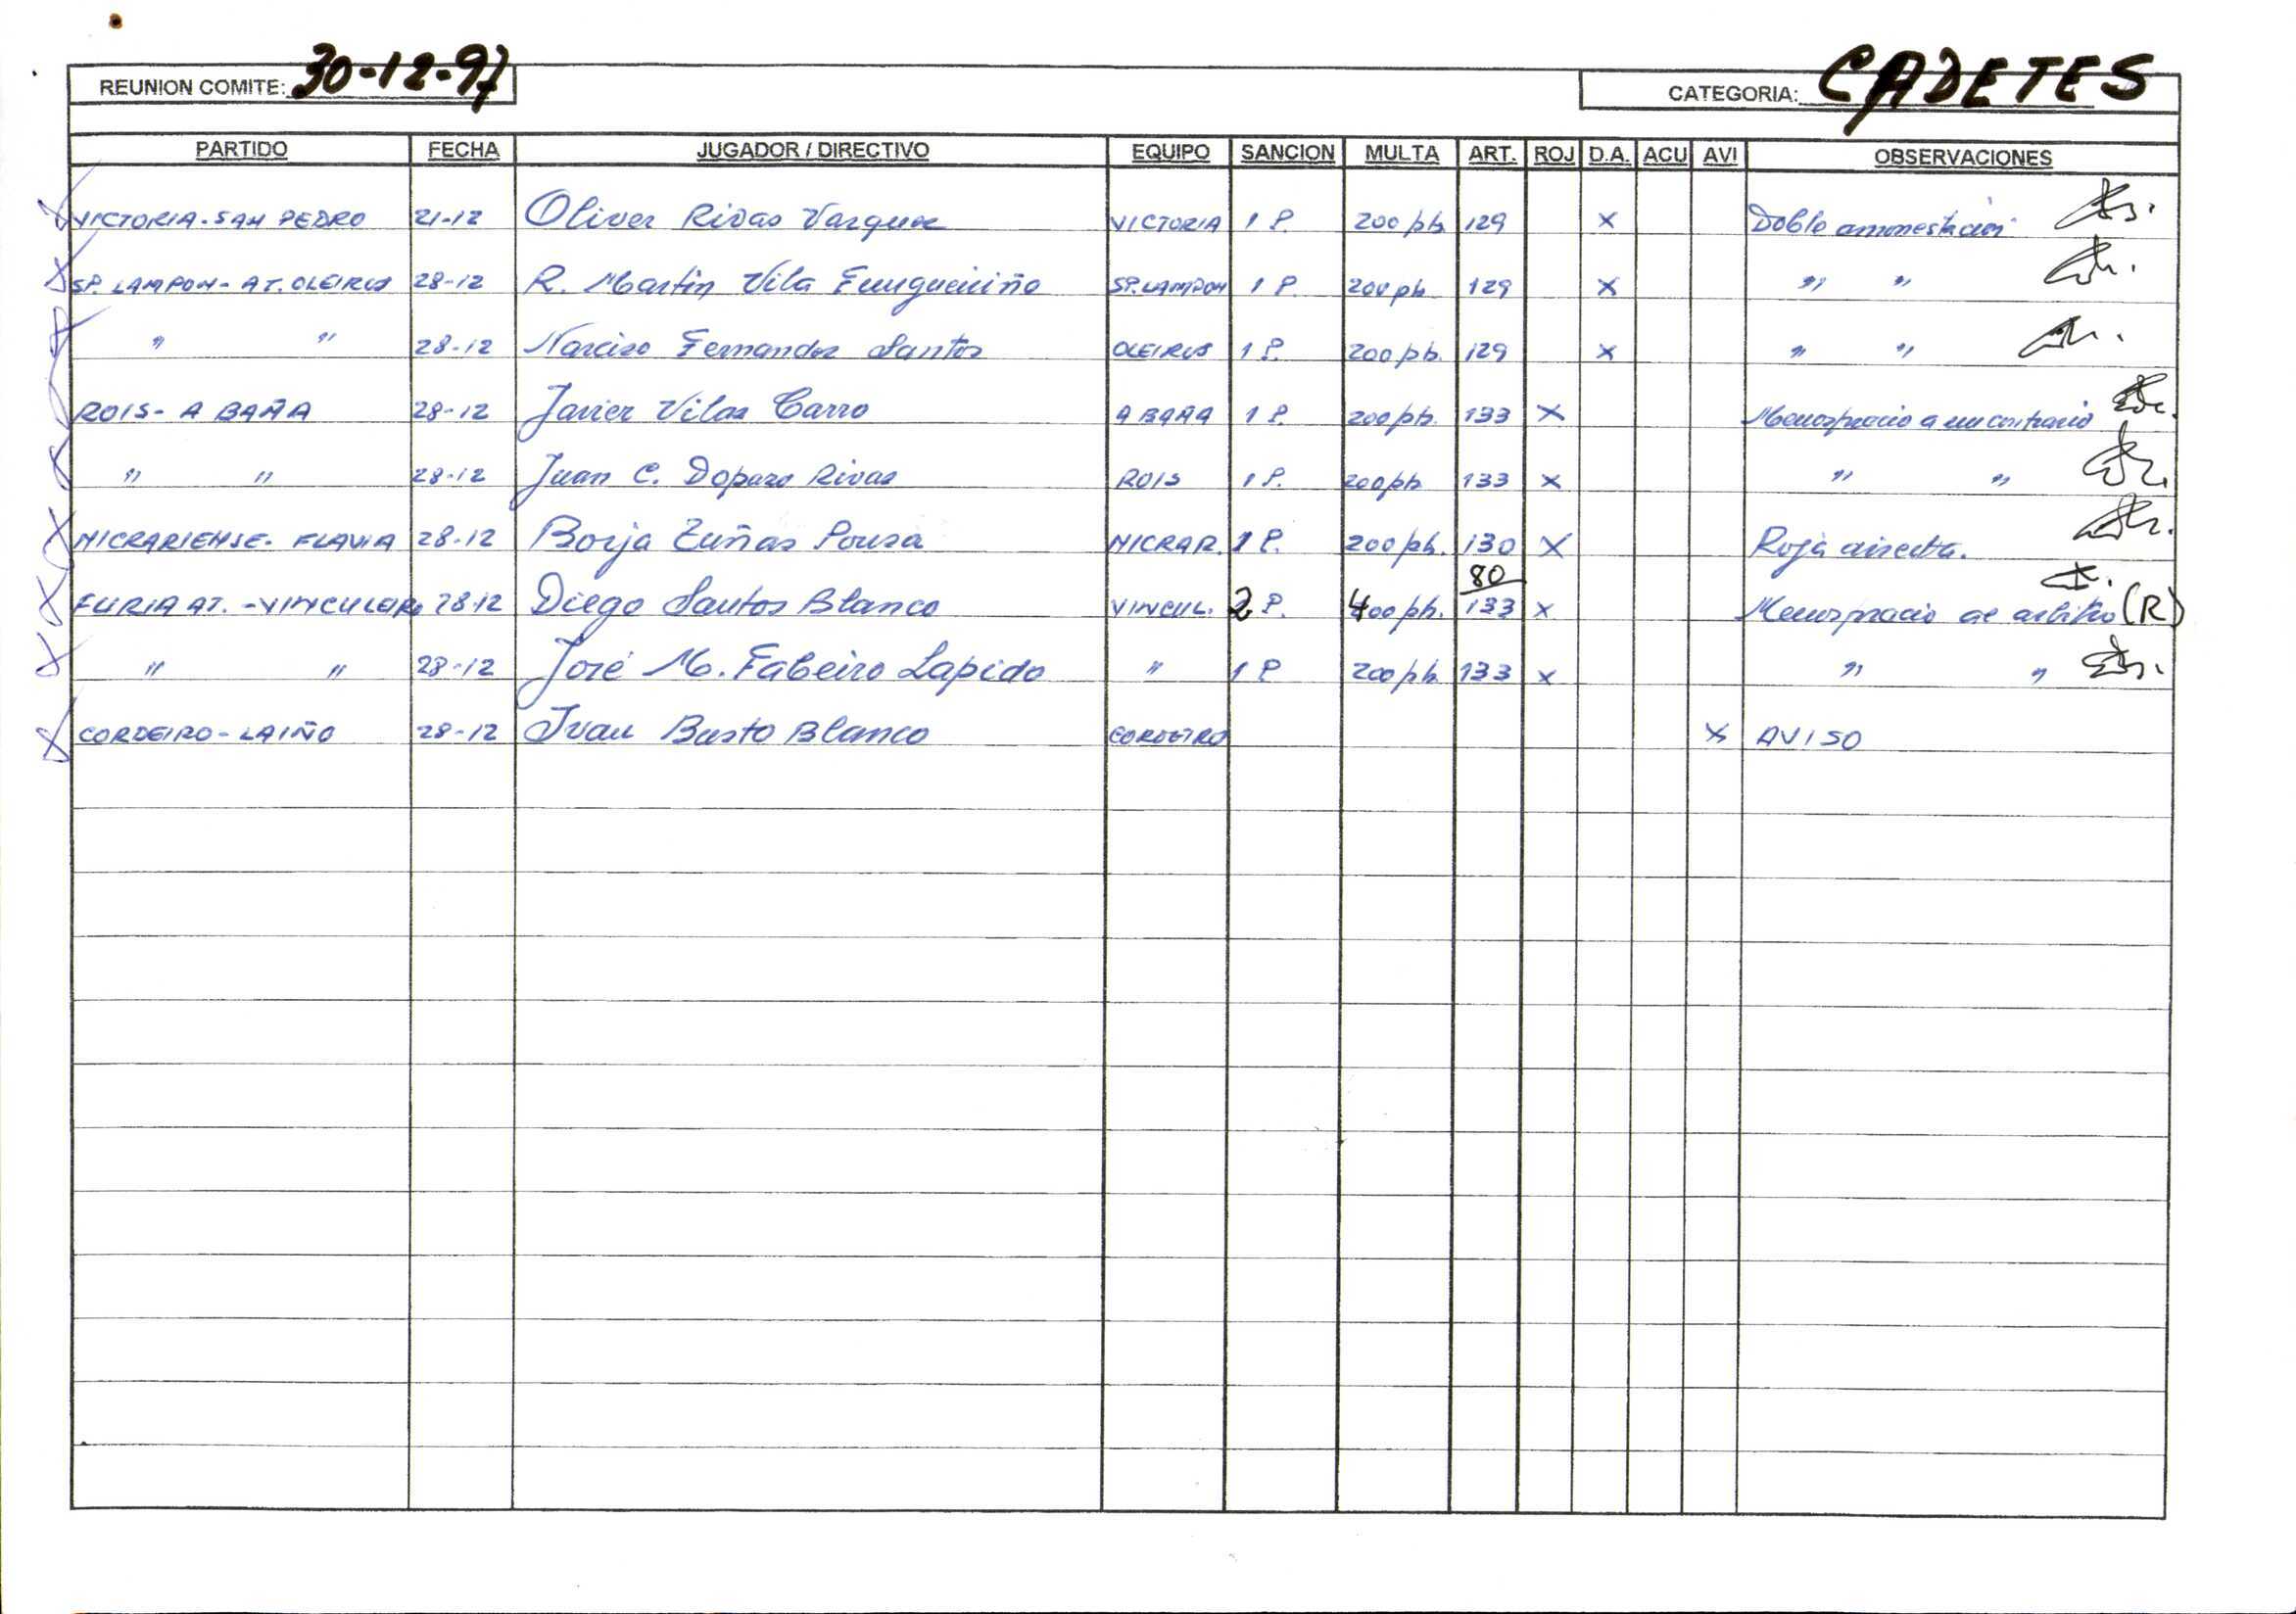 REUNION COMITE: 30-12-97 CATEGORIA: CADETES
PARTIDO FECHA JUGADOR / DIRECTIVO EQUIPO SANCION MULTA ART. ROJ D.A. ACU AVI OBSERVACIONES
VICTORIA-SAN PEDRO 21-12 Oliver Rivas Varquez VICTORIA 1 P. 200 pts 129 X Doble amonestación
SP. LAMPON- AT. OLEIROS 28-12 R. Martin Vila Fungueiriño SP. LAMPON 1 P. 200 pts 129 X " "
" " 28-12 Narciso Fernandez Santos OLEIROS 1 P. 200 pts. 129 X " "
ROIS- A BAÑA 28-12 Javier Vilas Carro A BAÑA 1 P. 200 pts. 133 X Menosprecio a un contrario
" " 28-12 Juan C. Dopazo Rivas ROIS 1 P. 200 pts 133 X " "
NICRARIENSE- FLAVIA 28-12 Borja Zuñas Pousa NICRAR. 1 P. 200 pts. 130 X Roja directa.
80
FURIA AT. - VINCULEIRO 28-12 Diego Santos Blanco VINCUL. 2 P. 400 pts. 133 X Menosprecio al arbitro (R)
" " 28-12 José M. Fabeiro Lapido " 1 P 200 pts 133 X " "
CORDEIRO- LAIÑO 28-12 Ivan Busto Blanco CORDEIRO X AVISO